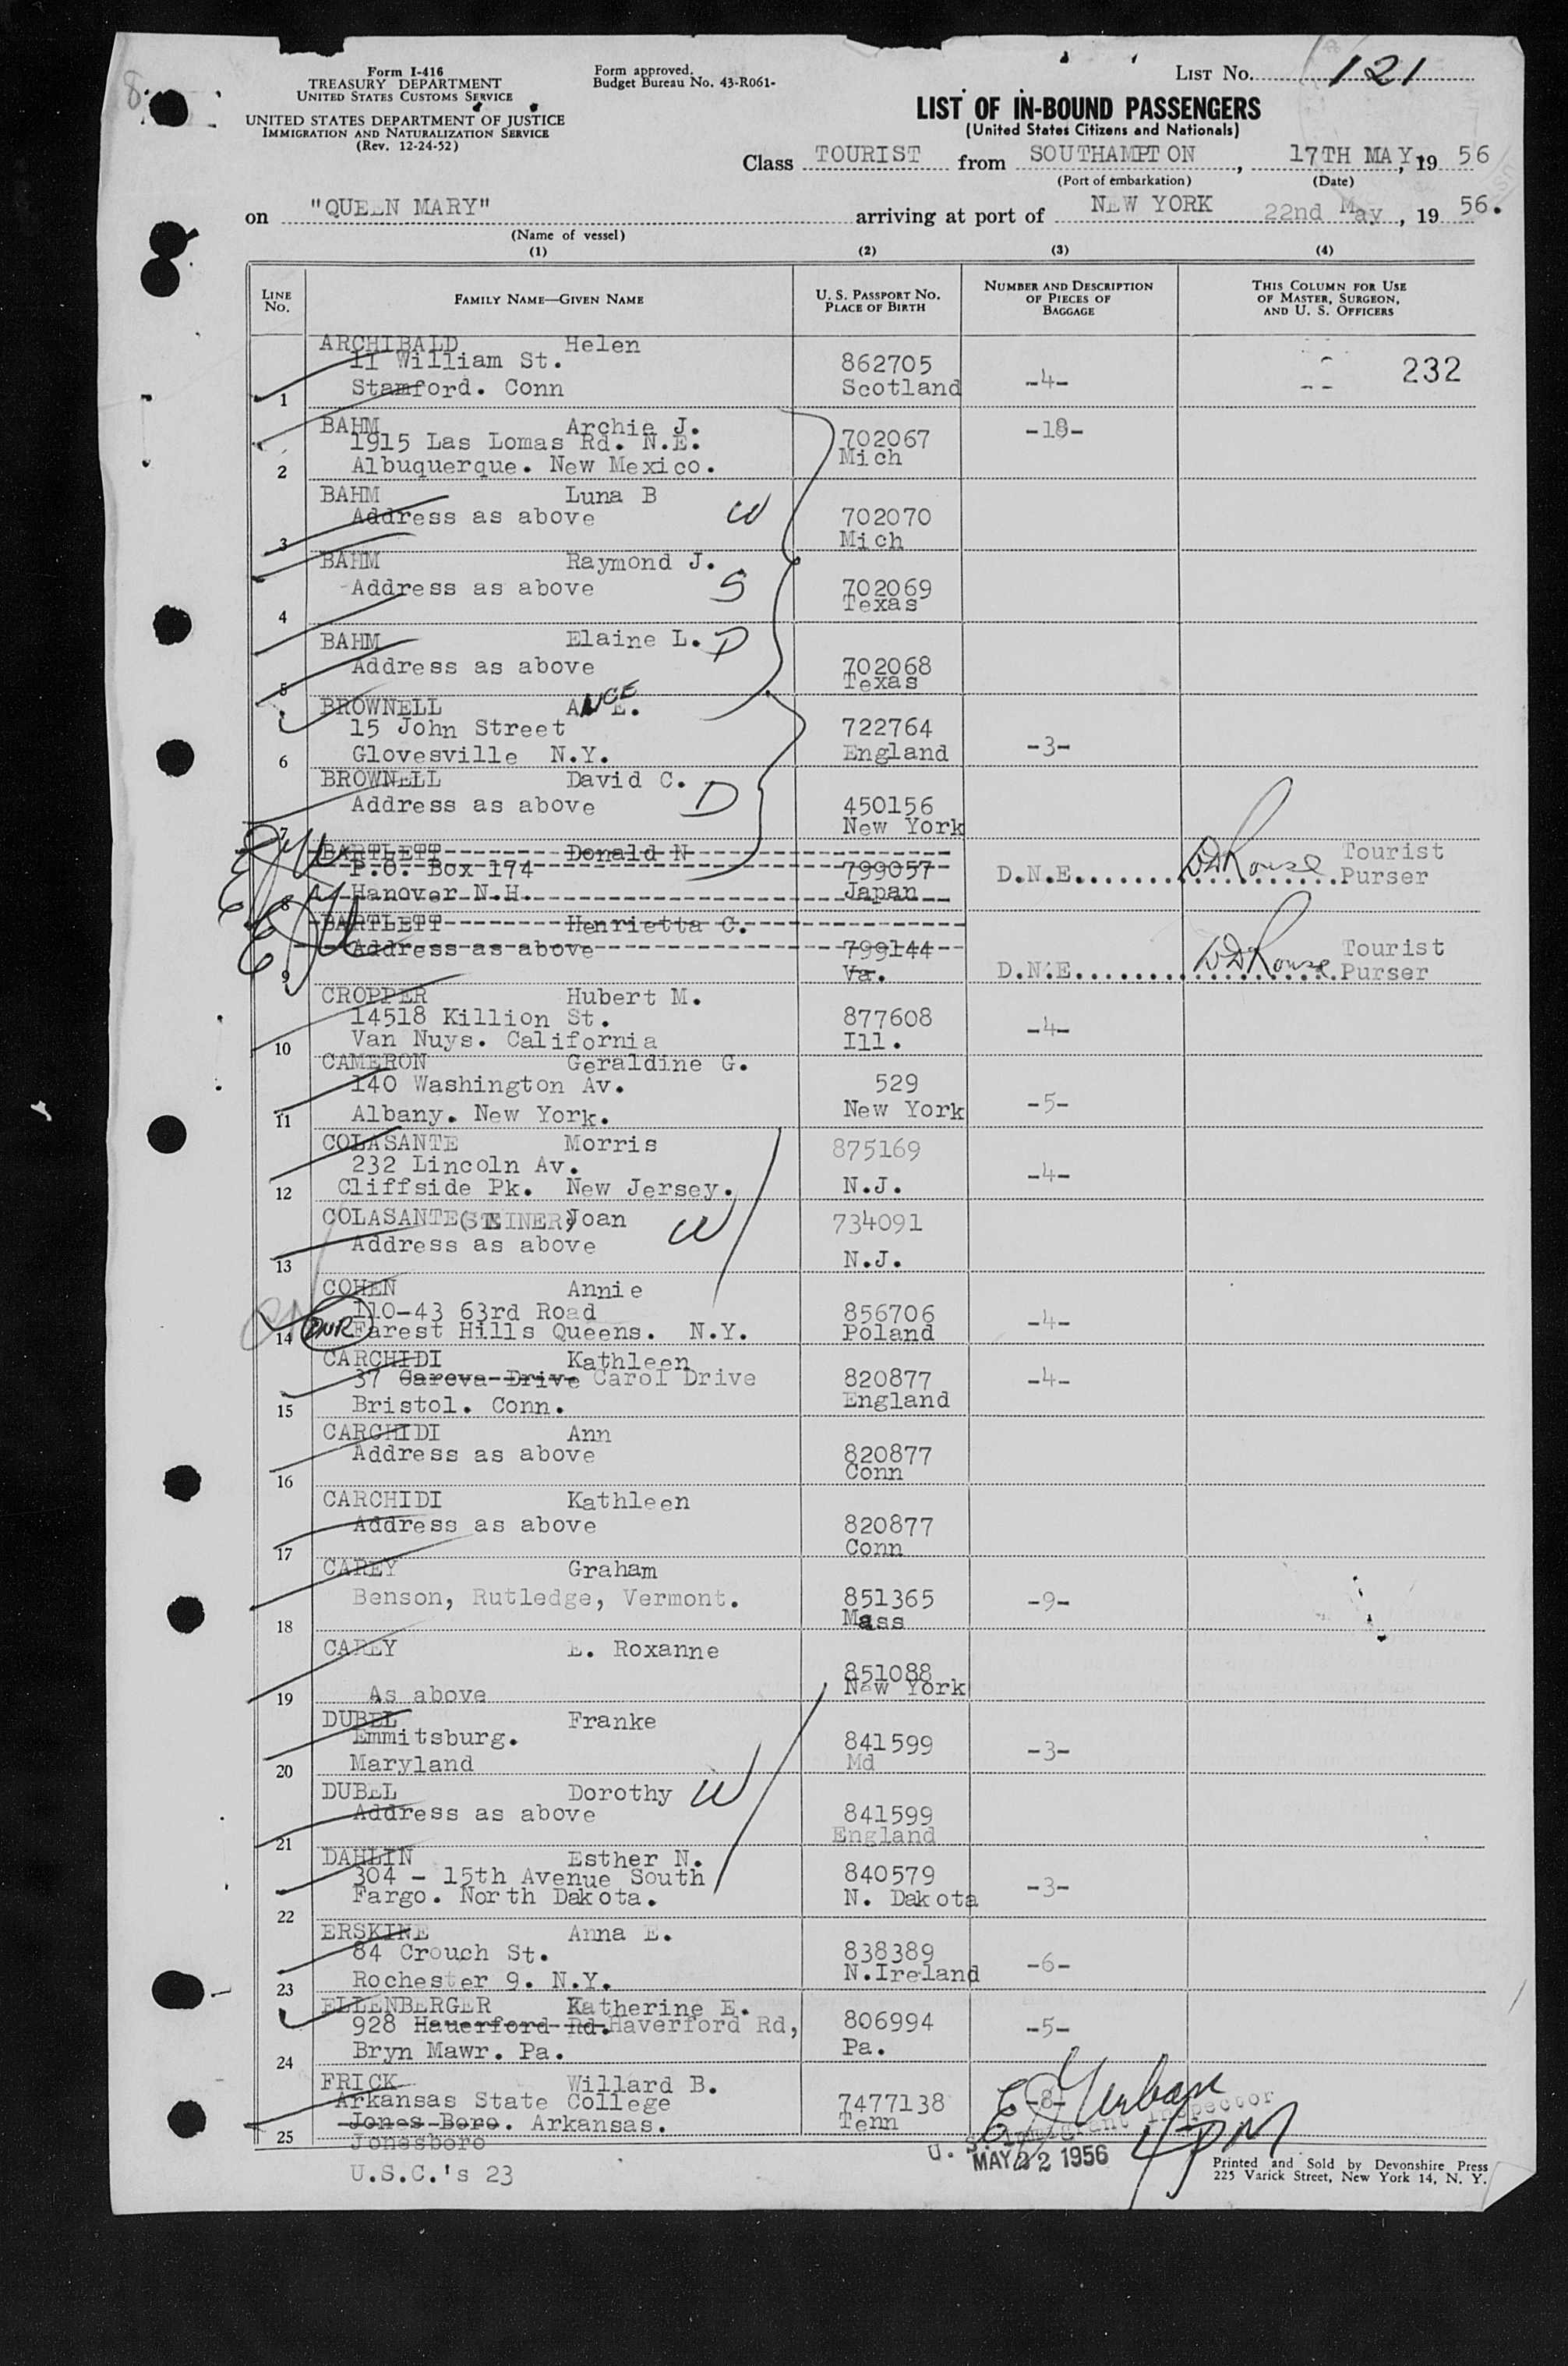 Form I-416
TREASURY DEPARTMENT
UNITED STATES CUSTOMS SERVICE
UNITED STATES DEPARTMENT OF JUSTICE
IMMIGRATION AND NATURALIZATION SERVICE
(Rev. 12-24-52)
Form approved.
Budget Bureau No. 43-R061-
LIST No. 121
LIST OF IN-BOUND PASSENGERS
(United States Citizens and Nationals)
Class TOURIST from SOUTHAMPTON, 17TH MAY, 19 56
(Port of embarkation) (Date)
on "QUEEN MARY" arriving at port of NEW YORK 22nd May, 19 56.
(Name of vessel)
(1) (2) (3) (4)
LINE No. FAMILY NAME—GIVEN NAME U. S. PASSPORT No. PLACE OF BIRTH NUMBER AND DESCRIPTION OF PIECES OF BAGGAGE THIS COLUMN FOR USE OF MASTER, SURGEON, AND U. S. OFFICERS
ARCHIBALD Helen
11 William St. 862705 232
1 Stamford. Conn Scotland -4-
BAHM Archie J. -18-
1915 Las Lomas Rd. N.E. 702067
2 Albuquerque. New Mexico. Mich
BAHM Luna B
Address as above W 702070
3 Mich
BAHM Raymond J.
Address as above S 702069
4 Texas
BAHM Elaine L. D
Address as above 702068
5 Texas
BROWNELL ANCE E.
15 John Street 722764
6 Glovesville N.Y. England -3-
BROWNELL David C.
Address as above D 450156
7 New York
BARTLETT Donald N Tourist
P.O. Box 174 799057 D.N.E. WDRouse Purser
8 Hanover N.H. Japan
BARTLETT Henrietta C. Tourist
Address as above 799144 D.N.E. WDRouse Purser
9 Va.
CROPPER Hubert M.
14518 Killion St. 877608
10 Van Nuys. California Ill. -4-
CAMERON Geraldine G.
140 Washington Av. 529
11 Albany. New York. New York -5-
COLASANTE Morris 875169
232 Lincoln Av. -4-
12 Cliffside Pk. New Jersey. N.J.
COLASANTE(STEINER)Joan W 734091
Address as above
13 N.J.
COHEN Annie
110-43 63rd Road 856706
14 DNR Farest Hills Queens. N.Y. Poland -4-
CARCHIDI Kathleen
37 Careva Drive Carol Drive 820877 -4-
15 Bristol. Conn. England
CARCHIDI Ann
Address as above 820877
16 Conn
CARCHIDI Kathleen
Address as above 820877
17 Conn
CAREY Graham
Benson, Rutledge, Vermont. 851365 -9-
18 Mass
CAREY E. Roxanne
851088
19 As above New York
DUBEL Franke
Emmitsburg. 841599
20 Maryland Md -3-
DUBEL Dorothy W
Address as above 841599
21 England
DAHLIN Esther N.
304 - 15th Avenue South 840579
22 Fargo. North Dakota. N. Dakota -3-
ERSKINE Anna E.
84 Crouch St. 838389
23 Rochester 9. N.Y. N.Ireland -6-
ELLENBERGER Katherine E.
928 Hauerford Rd. Haverford Rd, 806994 -5-
24 Bryn Mawr. Pa. Pa.
FRICK Willard B.
Arkansas State College 7477138 -8-
25 Jones Boro. Arkansas. Tenn
Jonesboro
U. S. Immigrant Inspector
MAY 22 1956 4PM
U.S.C.'s 23
Printed and Sold by Devonshire Press
225 Varick Street, New York 14, N. Y.